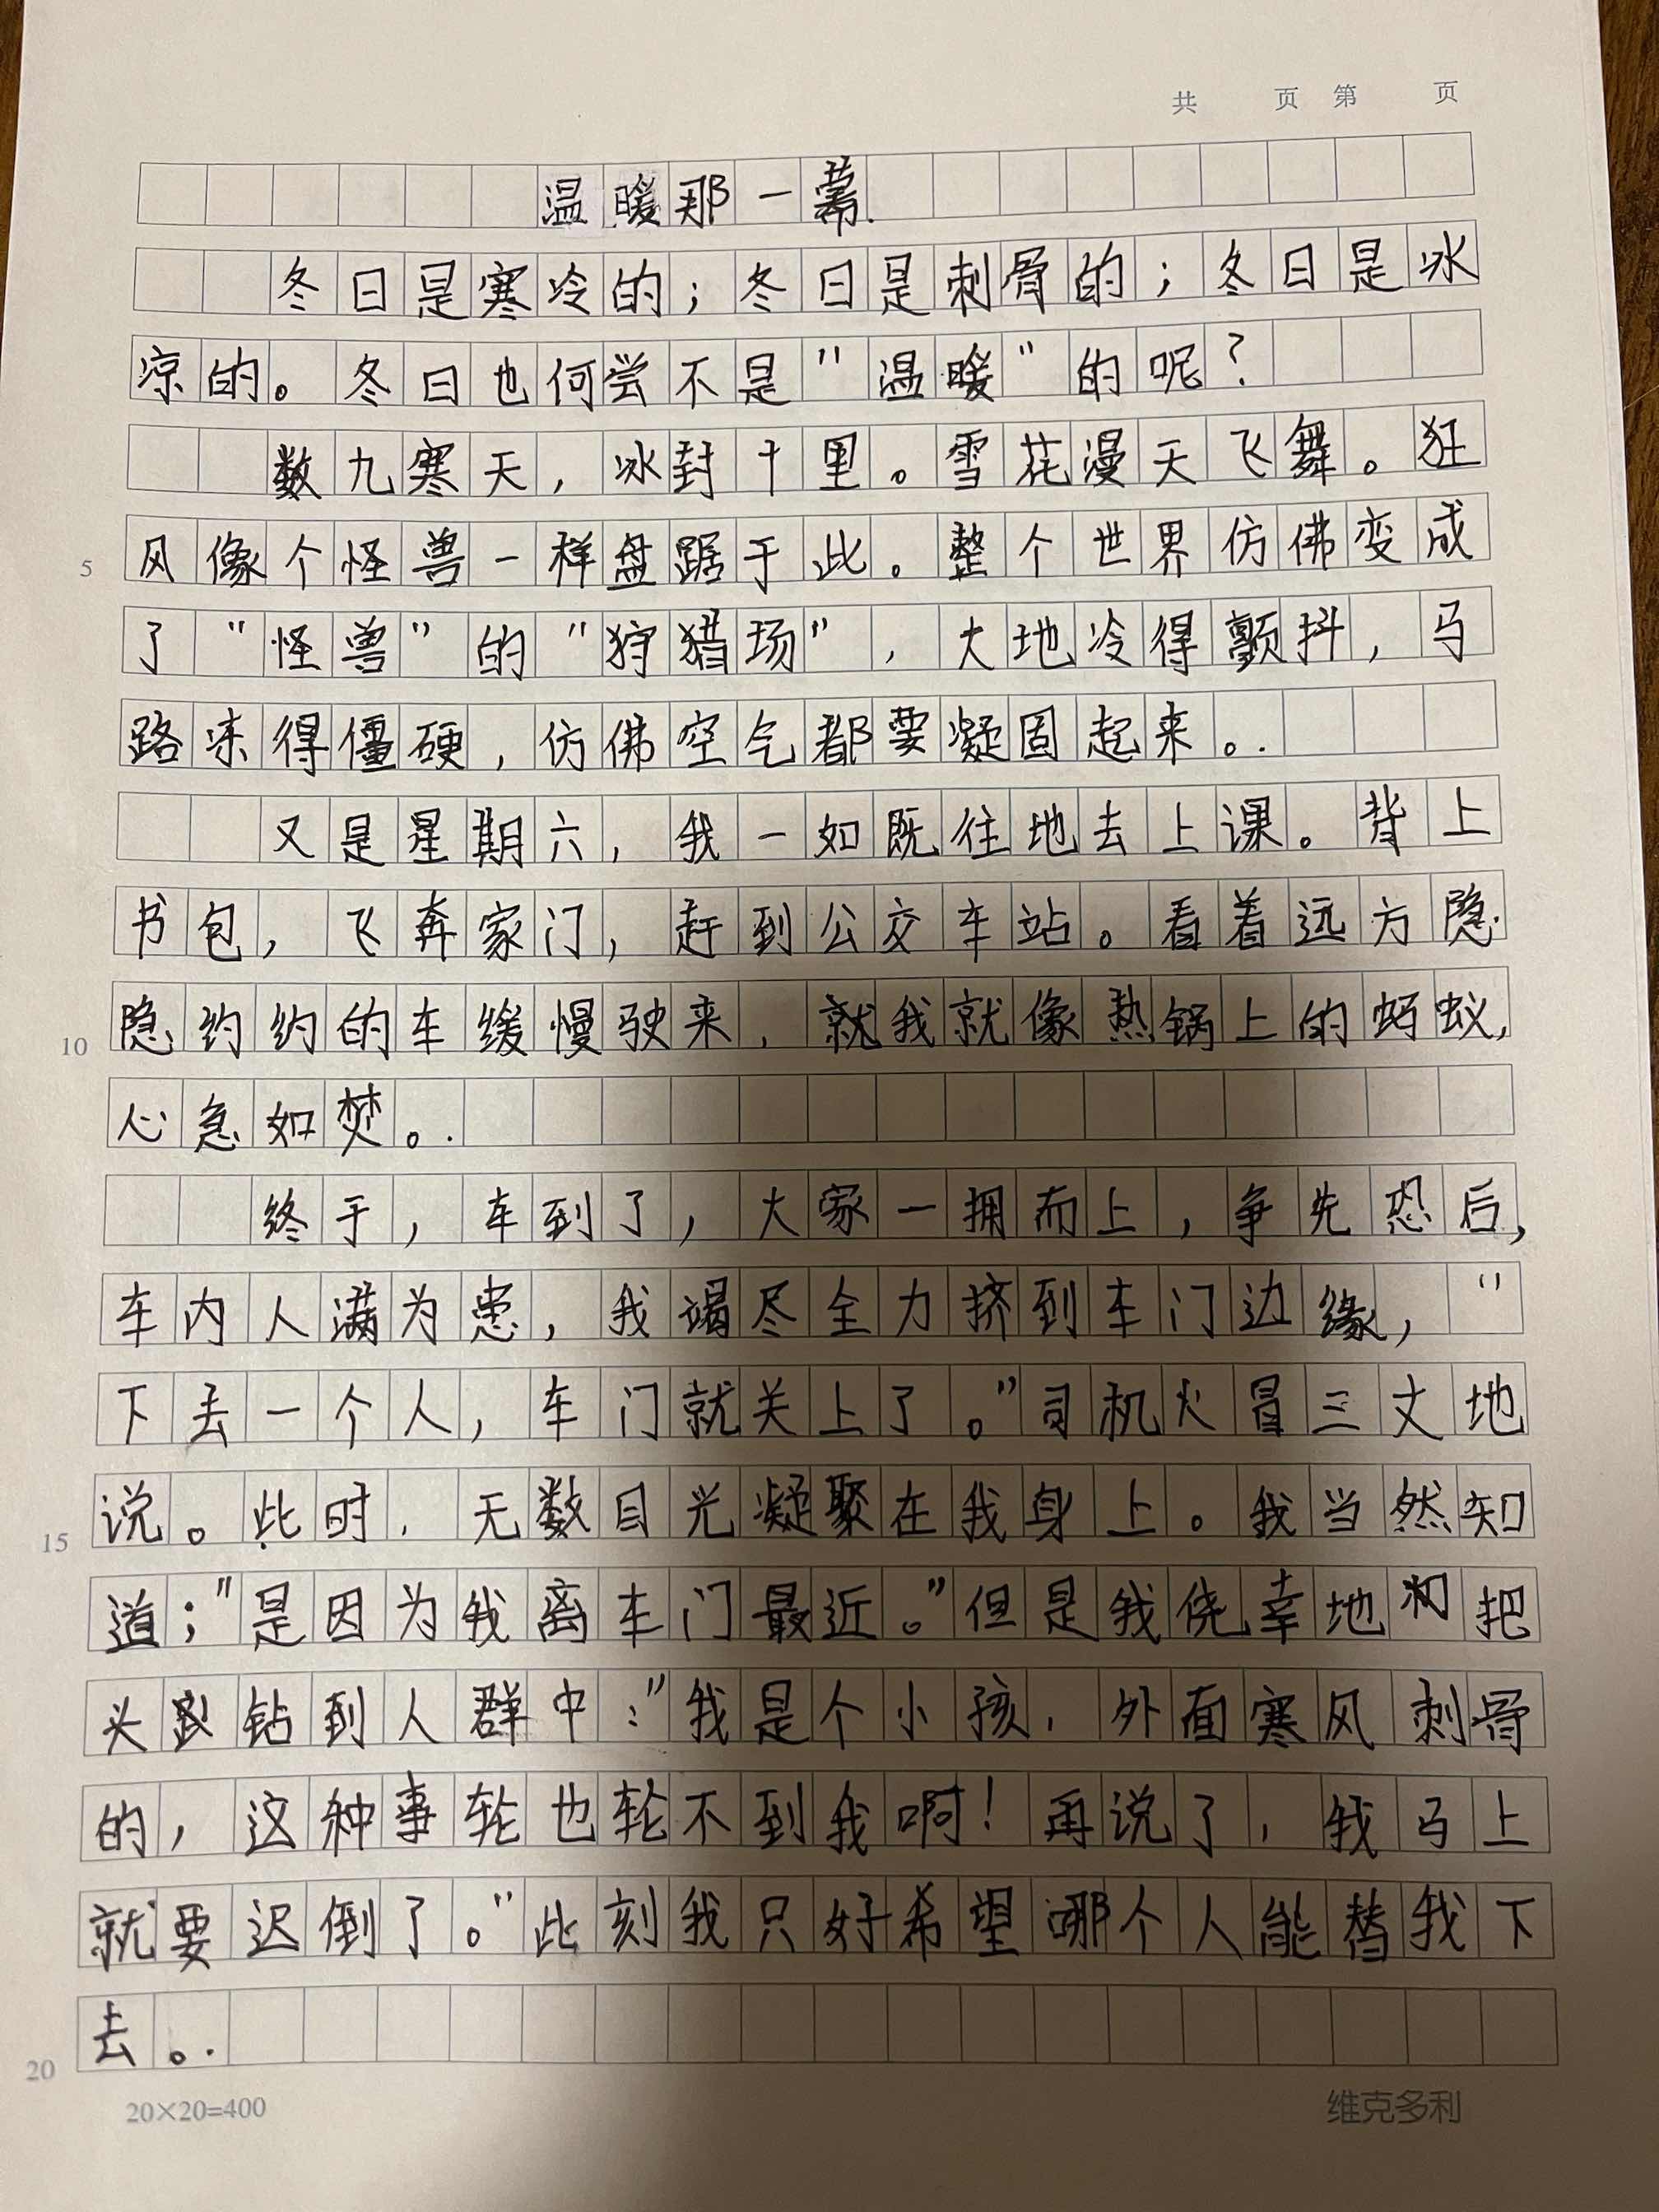 共 页 第 页
温暖那一幕
冬日是寒冷的；冬日是刺骨的；冬日是冰
凉的。冬日也何尝不是"温暖"的呢？
数九寒天，冰封千里。雪花漫天飞舞。狂
5 风像个怪兽一样盘踞于此。整个世界仿佛变成
了"怪兽"的"狩猎场"，大地冷得颤抖，马
路冻得僵硬，仿佛空气都要凝固起来。
又是星期六，我一如既往地去上课。背上
书包，飞奔家门，赶到公交车站。看着远方隐
10 隐约约的车缓慢驶来，就我就像热锅上的蚂蚁，
心急如焚。
终于，车到了，大家一拥而上，争先恐后，
车内人满为患，我竭尽全力挤到车门边缘，"
下去一个人，车门就关上了。"司机火冒三丈地
15 说。此时，无数目光凝聚在我身上。我当然知
道；"是因为我离车门最近。"但是我侥幸地把
头钻到人群中："我是个小孩，外面寒风刺骨
的，这种事轮也轮不到我啊！再说了，我马上
就要迟倒了。"此刻我只好希望哪个人能替我下
20 去。
20×20=400 维克多利